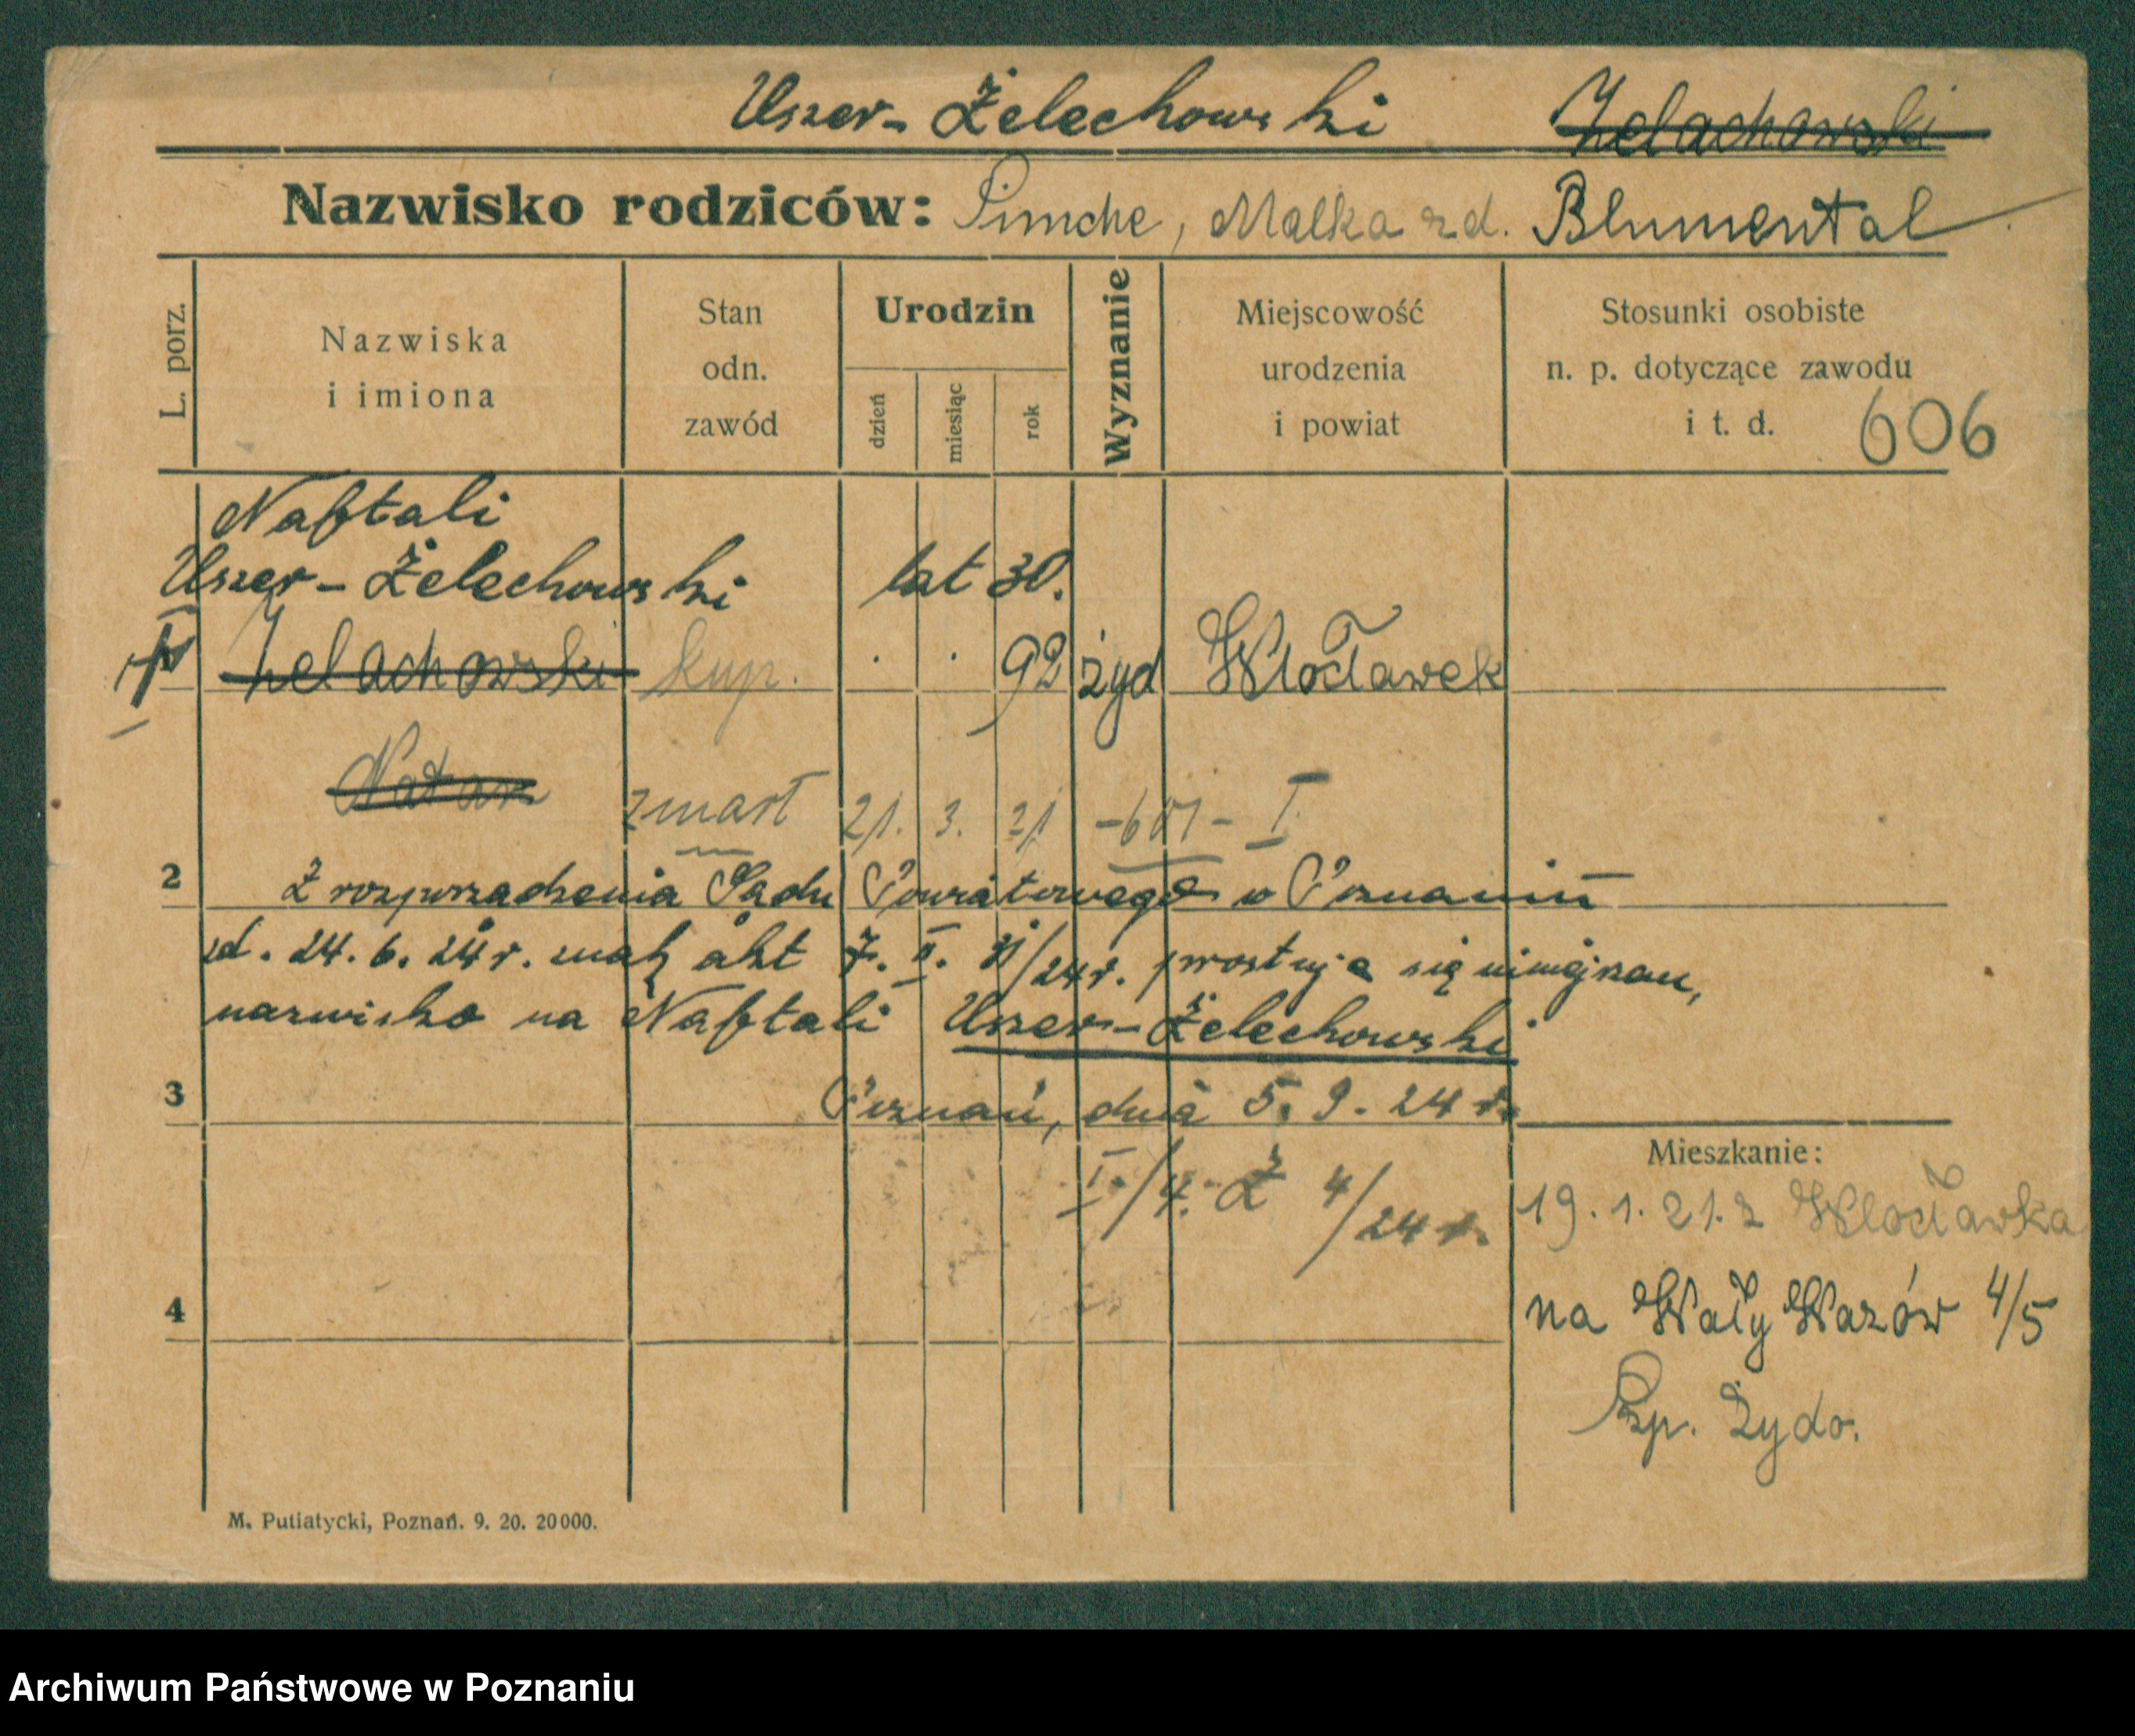 Uszer-Żelechowski Zelachowski
Nazwisko rodziców: Simche, Malka zd. Blumental
L. porz.
Nazwiska
i imiona
Stan
odn.
zawód
Urodzin
dzień
miesiąc
rok
Wyznanie
Miejscowość
urodzenia
i powiat
Stosunki osobiste
n. p. dotyczące zawodu
i t. d.
606
Naftali
Uszer-Żelechowski lat 30.
Zelachowski kup. . . 92 żyd Włocławek
Natan zmarł 21. 3. 21 I.
2 Z rozporządzenia Sądu Powiatowego w Poznaniu
zd. 24. 6. 24 r. akt 7. II. /24 r. prostuje się
nazwisko na Naftali Uszer-Żelechowski
3 Poznań, dnia 5. 9. 24 r.
I./4. Ż 4/24 r.
Mieszkanie:
19. 1. 21. z Włocławka
na Wały Wazów 4/5
4
Szp. Żydo.
M. Putiatycki, Poznań. 9. 20. 20000.
Archiwum Państwowe w Poznaniu